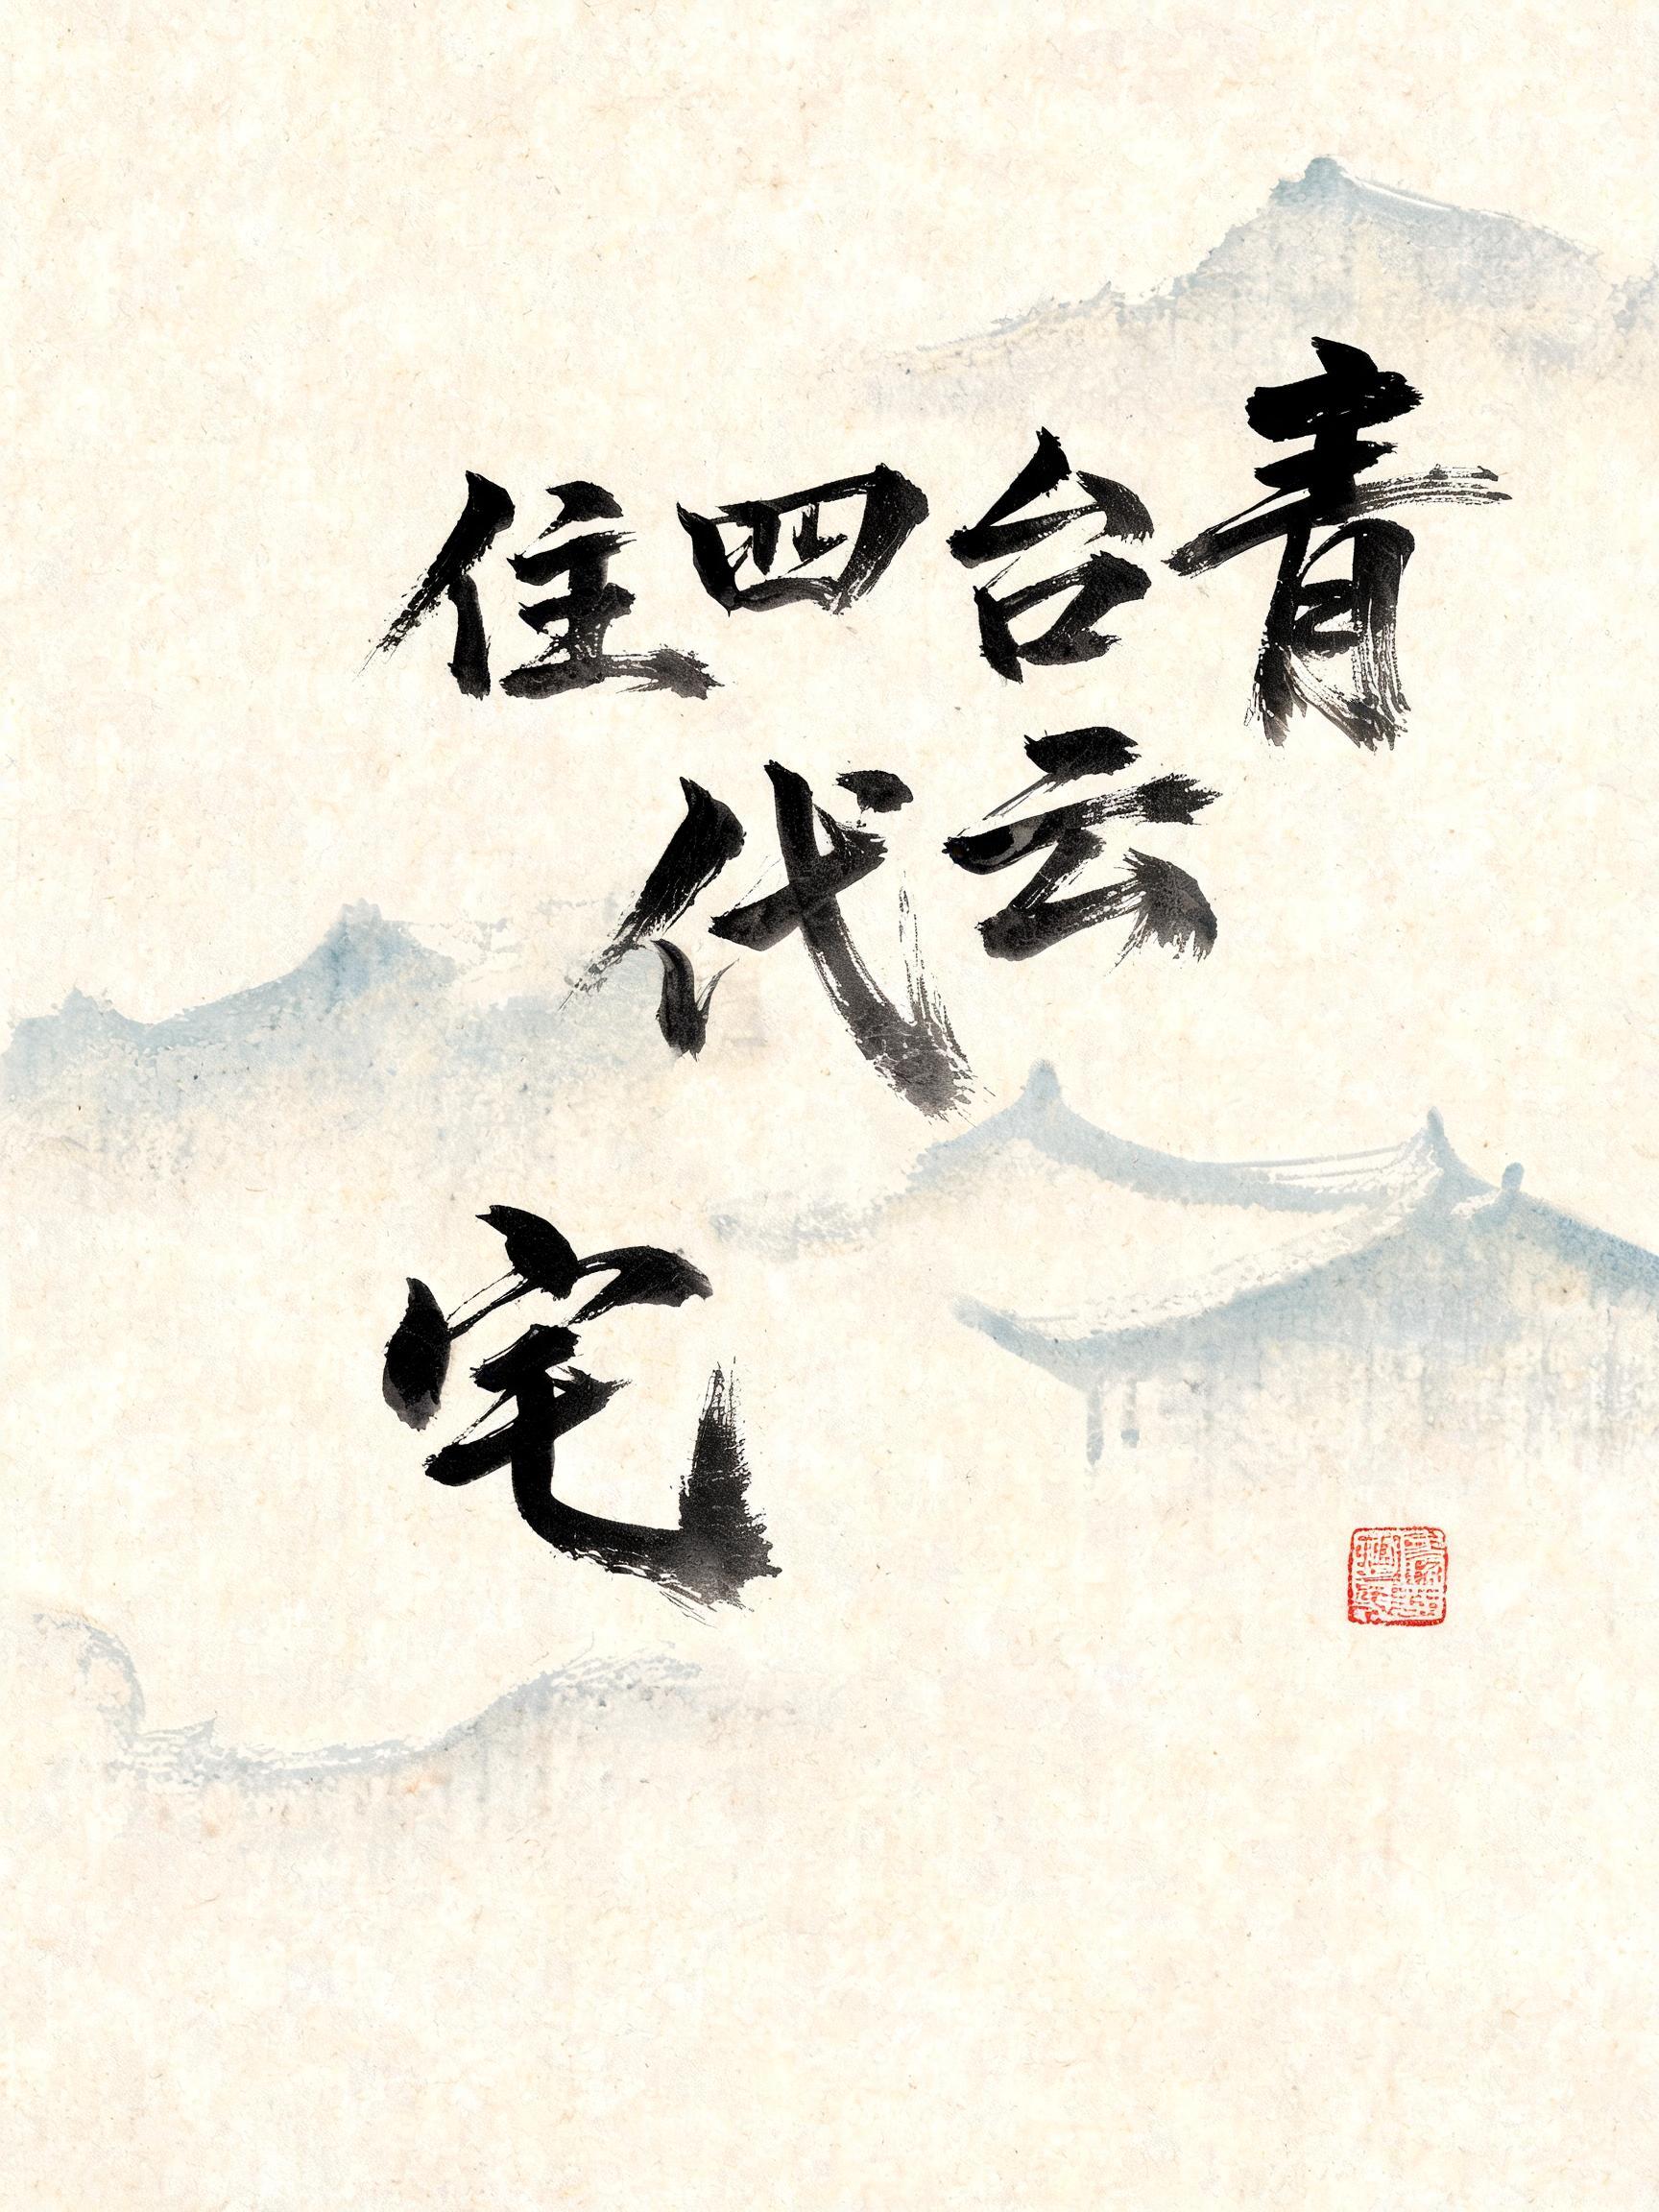 青
台云
四代
住宅